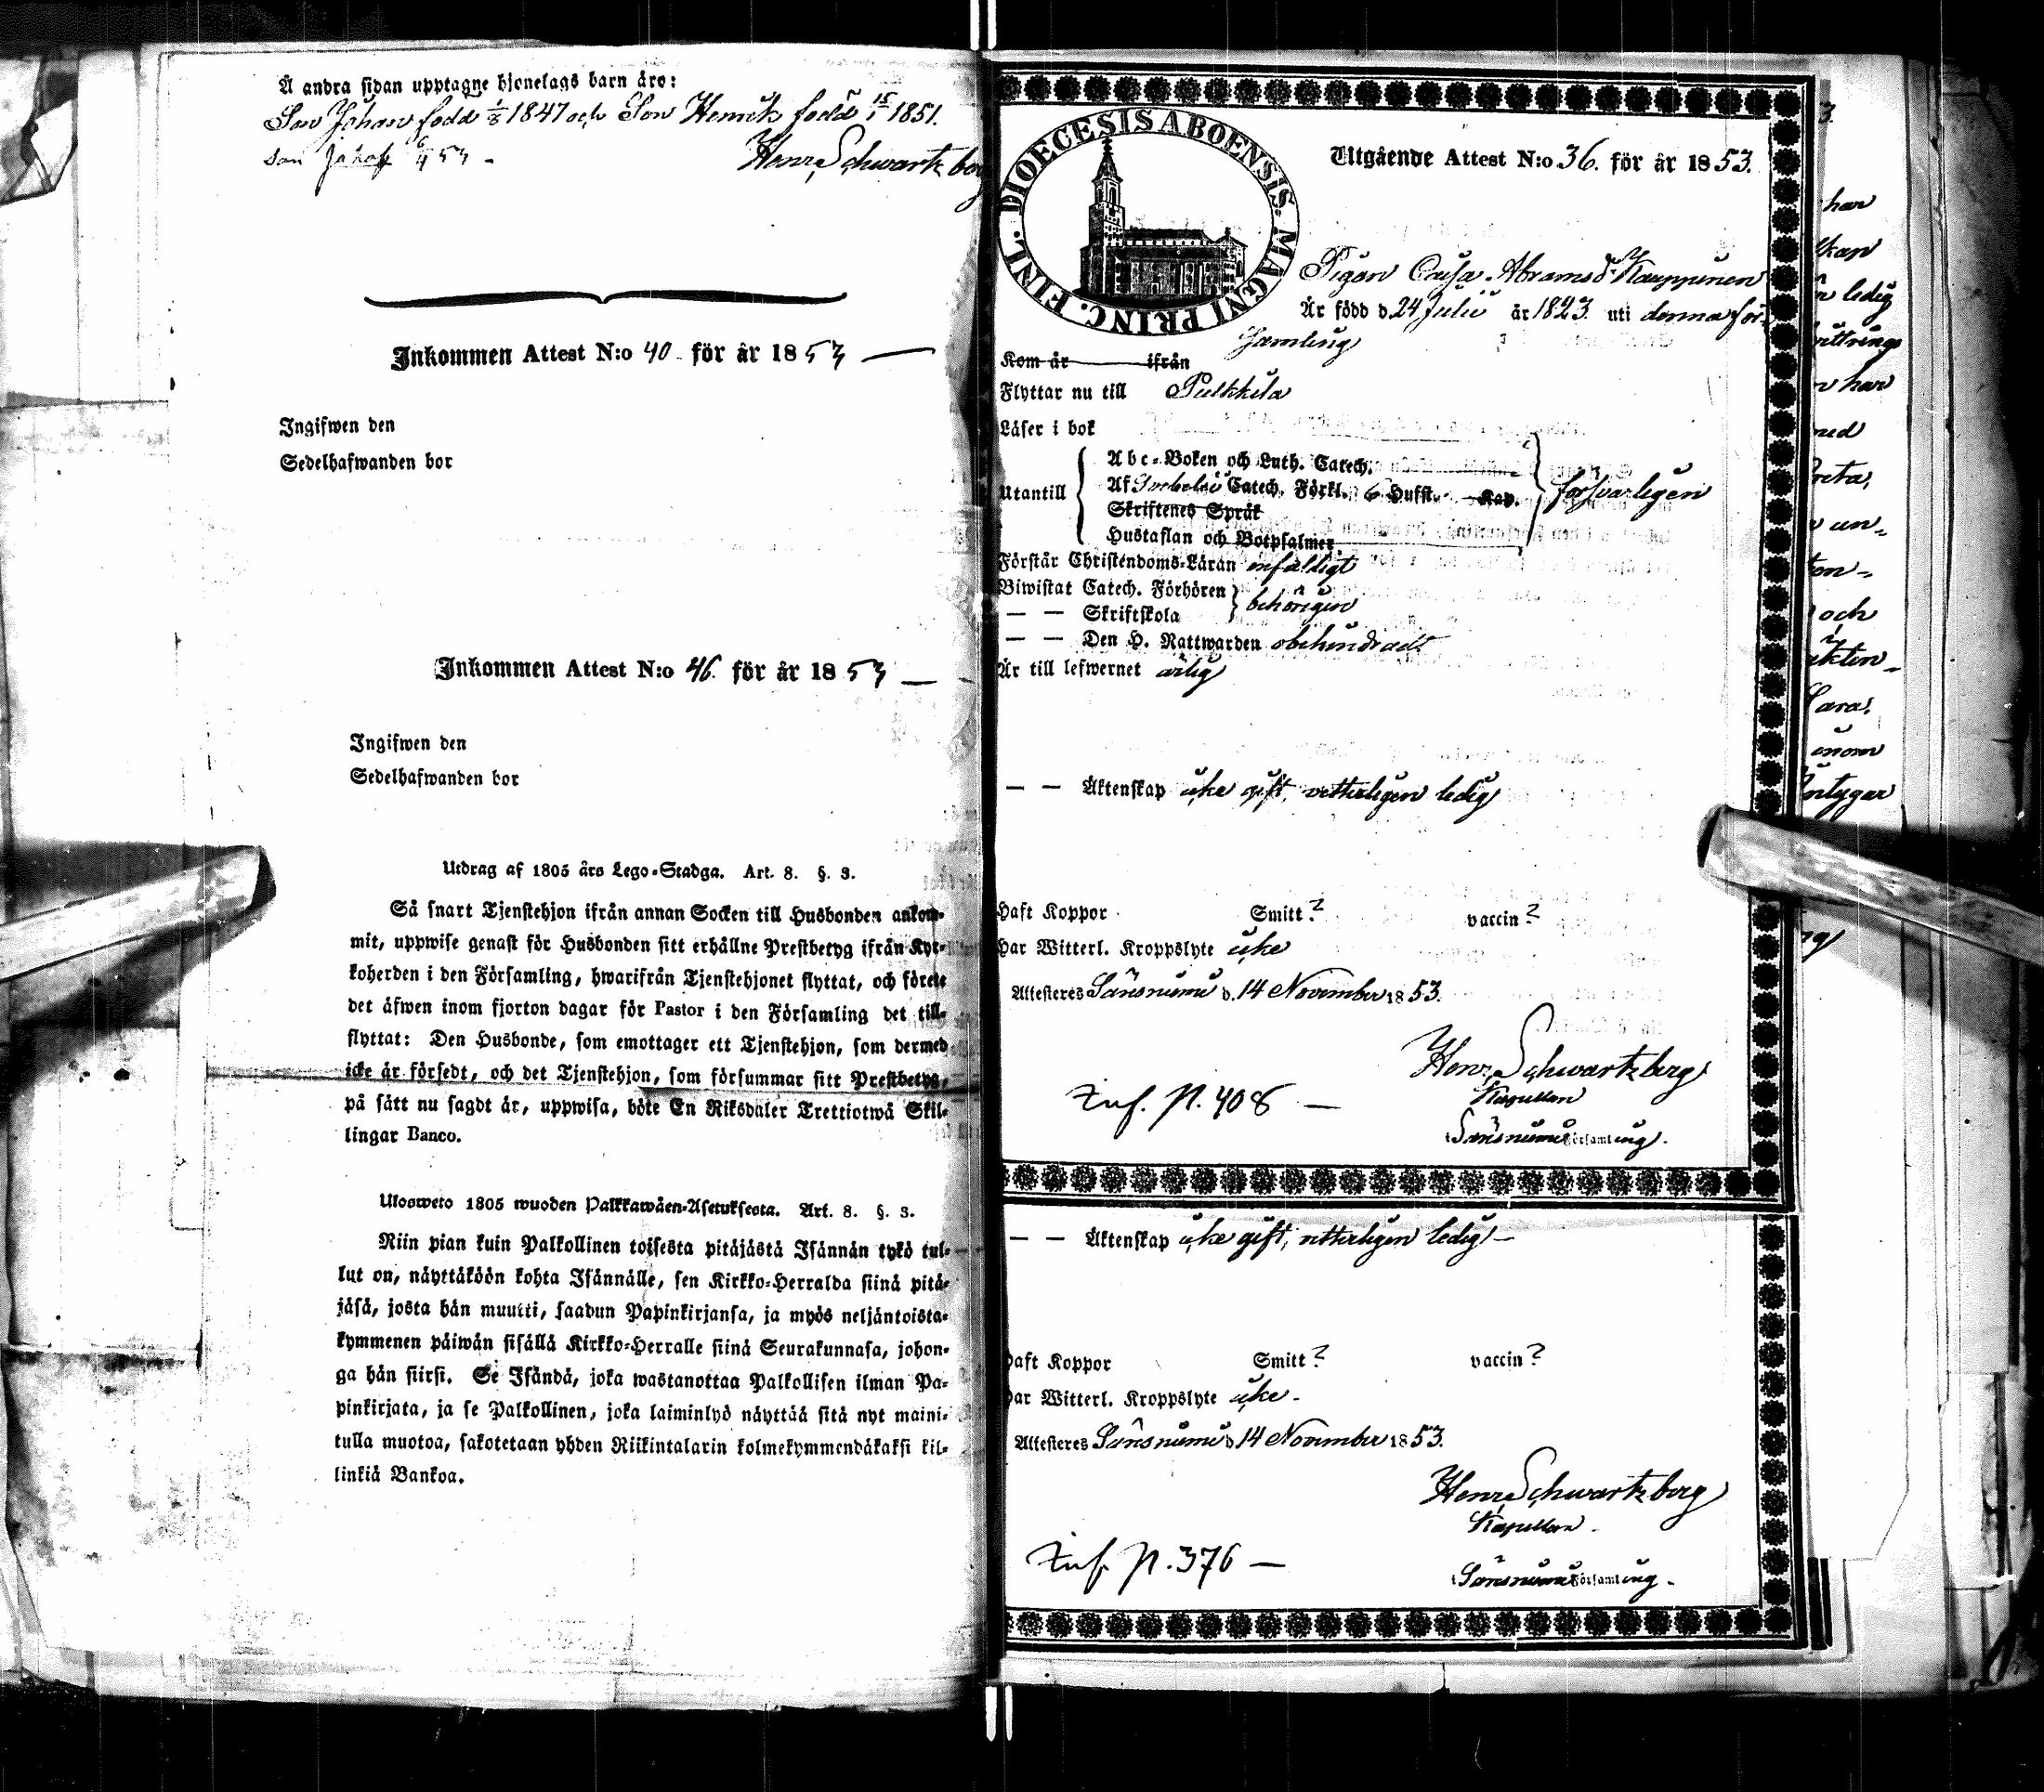 Å andra sidan upptagne hjonelags barn äro:
Son Johan född 1/8 1847 och Son Henrik född 15/1 1851.
son Jakob 53 -
Henr. Schwartzberg
Inkommen Attest N:o 40 - för år 1853 —
Ingifwen den
Sedelhafwanden bor
Inkommen Attest N:o 46. för år 1853 —
Ingifwen den
Sedelhafwanden bor
Utdrag af 1805 års Lego-Stadga. Art. 8. §. 3.
Så snart Tjenstehjon ifrån annan Socken till Husbonden ankom-
mit, uppwise genast för Husbonden sitt erhållne Prestbetyg ifrån Kyr-
koherden i den Församling, hwarifrån Tjenstehjonet flyttat, och förete
det äfwen inom fjorton dagar för Pastor i den Församling det till-
flyttat: Den Husbonde, som emottager ett Tjenstehjon, som dermed
icke är försedt, och det Tjenstehjon, som försummar sitt Prestbetyg,
på sätt nu sagdt är, uppwisa, böte En Riksdaler Trettiotwå Skil-
lingar Banco.
Ulosweto 1805 wuoden Palkkawäen-Asetuksesta. Art. 8. §. 3.
Niin pian kuin Palkollinen toisesta pitäjästä Isännän tykö tul-
lut on, näyttäköön kohta Isännälle, sen Kirkko-Herralda siinä pitä-
jäsä, josta hän muutti, saadun Papinkirjansa, ja myös neljäntoista-
kymmenen päiwän sisällä Kirkko-Herralle siinä Seurakunnasa, johon-
ga hän siirsi. Se Isändä, joka wastanottaa Palkollisen ilman Pa-
pinkirjata, ja se Palkollinen, joka laiminlyö näyttää sitä nyt maini-
tulla muotoa, sakotetaan yhden Riikintalarin kolmekymmendäkaksi kil-
linkiä Bankoa.
DIOECESIS ABOENSIS. MAGNI PRINC. FINL.
Utgående Attest N:o 36. för år 1853.
Pigan Caisa Abramsdr Kauppinen
Är född d. 24 Julii år 1823 uti denna för-
samling
Kom år ifrån
Flyttar nu till Pulkkila
Läser i bok
Utantill
Abc-Boken och Luth. Catech.
Af Svebelii Catech. Förkl. 6 Hufst. Kap.
Skriftenes Språk
Hustaflan och Botpsalmer
försvarligen
Förstår Christendoms-Läran enfaldigt
Biwistat Catech. Förhören
— — Skriftskola
behörigen
— — Den H. Nattwarden obehindradt
Är till lefwernet ärlig
— — Äktenskap icke gift, vitterligen ledig
Haft Koppor Smitt ? vaccin ?
Har Witterl. Kroppslyte icke
Attesteres Säräisniemi d. 14 November 1853.
Henr. Schwartzberg
Kapellan
Församling.
Inf. p. 408 —
— — Äktenskap icke gift, vitterligen ledig —
Haft Koppor Smitt ? vaccin ?
Har Witterl. Kroppslyte icke -
Attesteres d 14 November 1853.
Henr. Schwartzberg
Kapellan -
Församling -
Inf. p. 376 —
har
ledig
har
och
Intygar